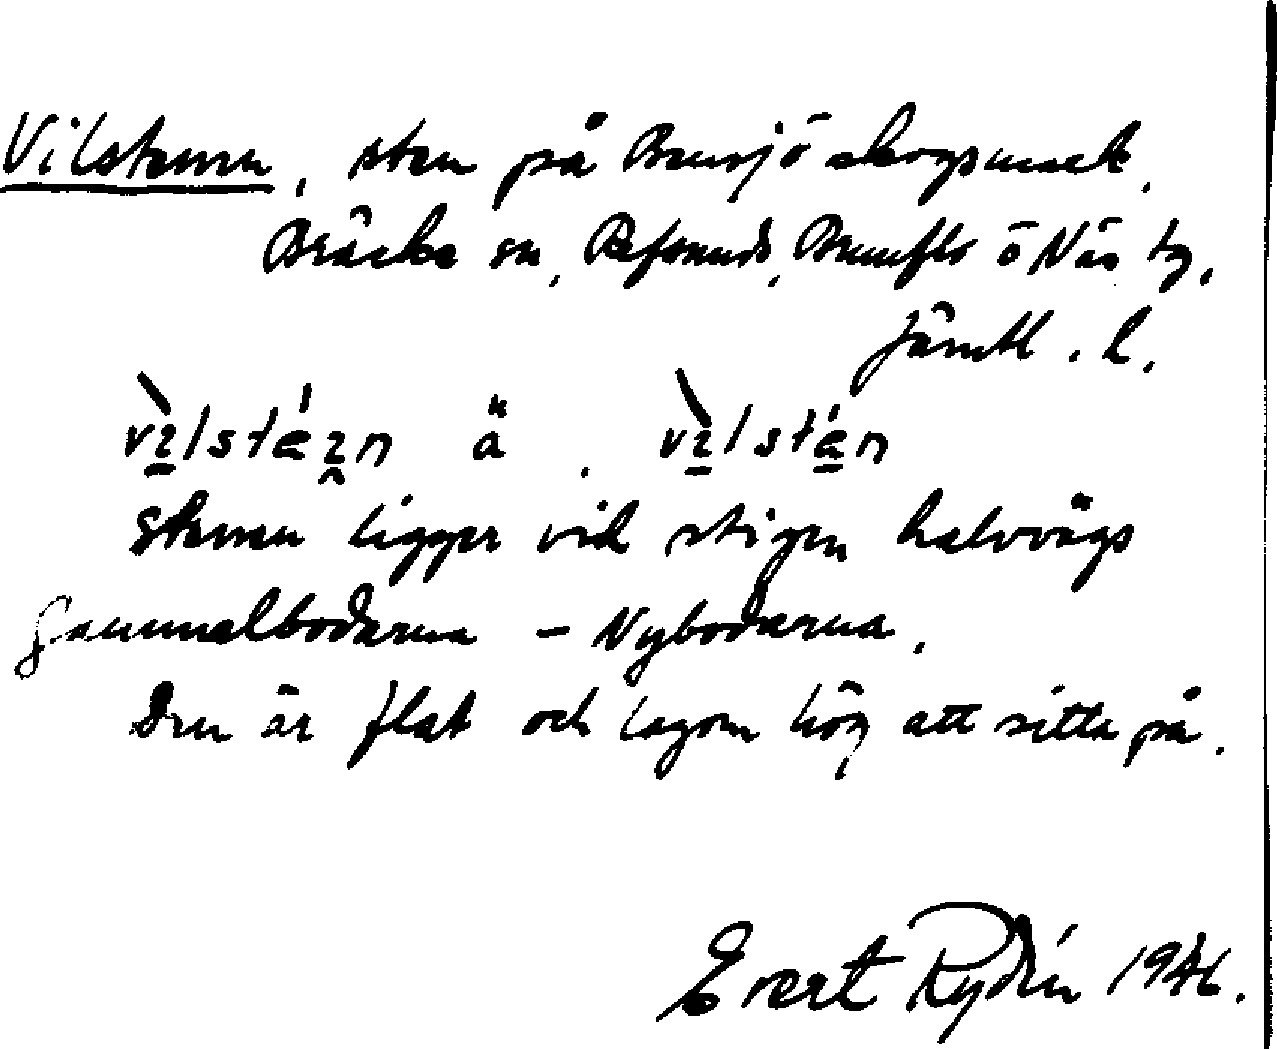 Vilstenen, sten på Bensjö skogsmark,
Bräcke sn, Refsunds, Brunflo o Näs tg,
Jämtl. l.
stenen ligger vid stigen halvvägs
Gammelbodarna – Nybodarna.
Den är flat och lagom hög att sitta på.
Evert Rydén 1946.